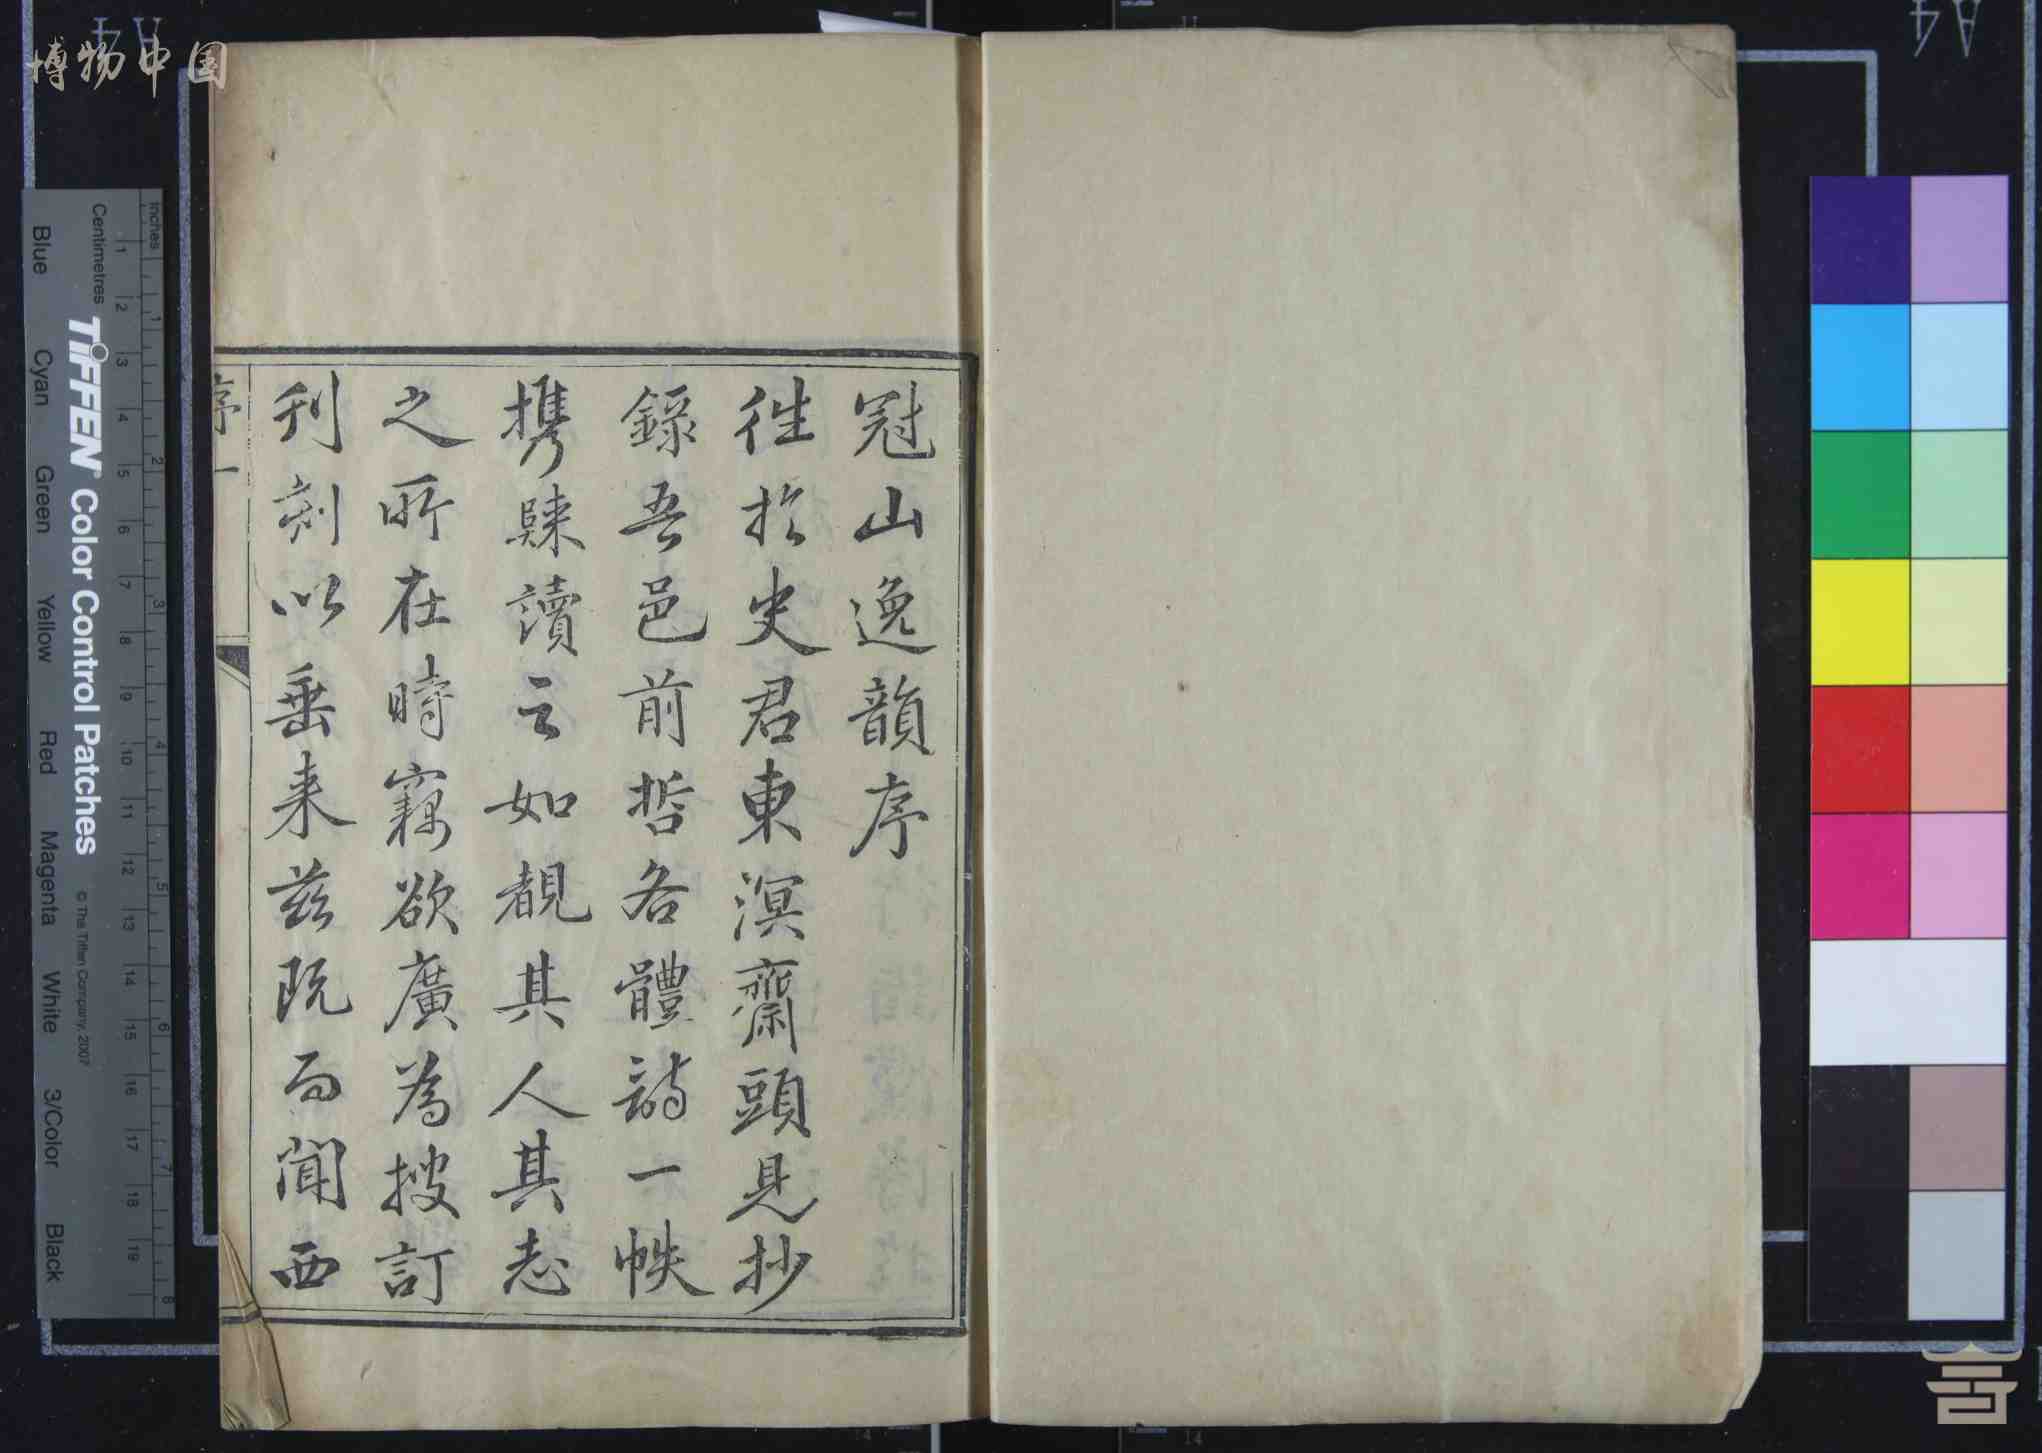 冠山逸韻序
徃扵史君東溟齋頭見抄
錄吾邑前哲各體詩一帙
携歸讀之如覩其人其志
之所在時竊欲廣為搜訂
刊刻以垂來茲既而聞西
序一
博物中国
Inches
Centimetres
TIFFEN Color Control Patches
© The Tiffen Company, 2007
Blue Cyan Green Yellow Red Magenta White 3/Color Black
1 2 3 4 5 6 7 8 9 10 11 12 13 14 15 16 17 18 19
1 2 3 4 5 6 7 8
A4
A4
14
14